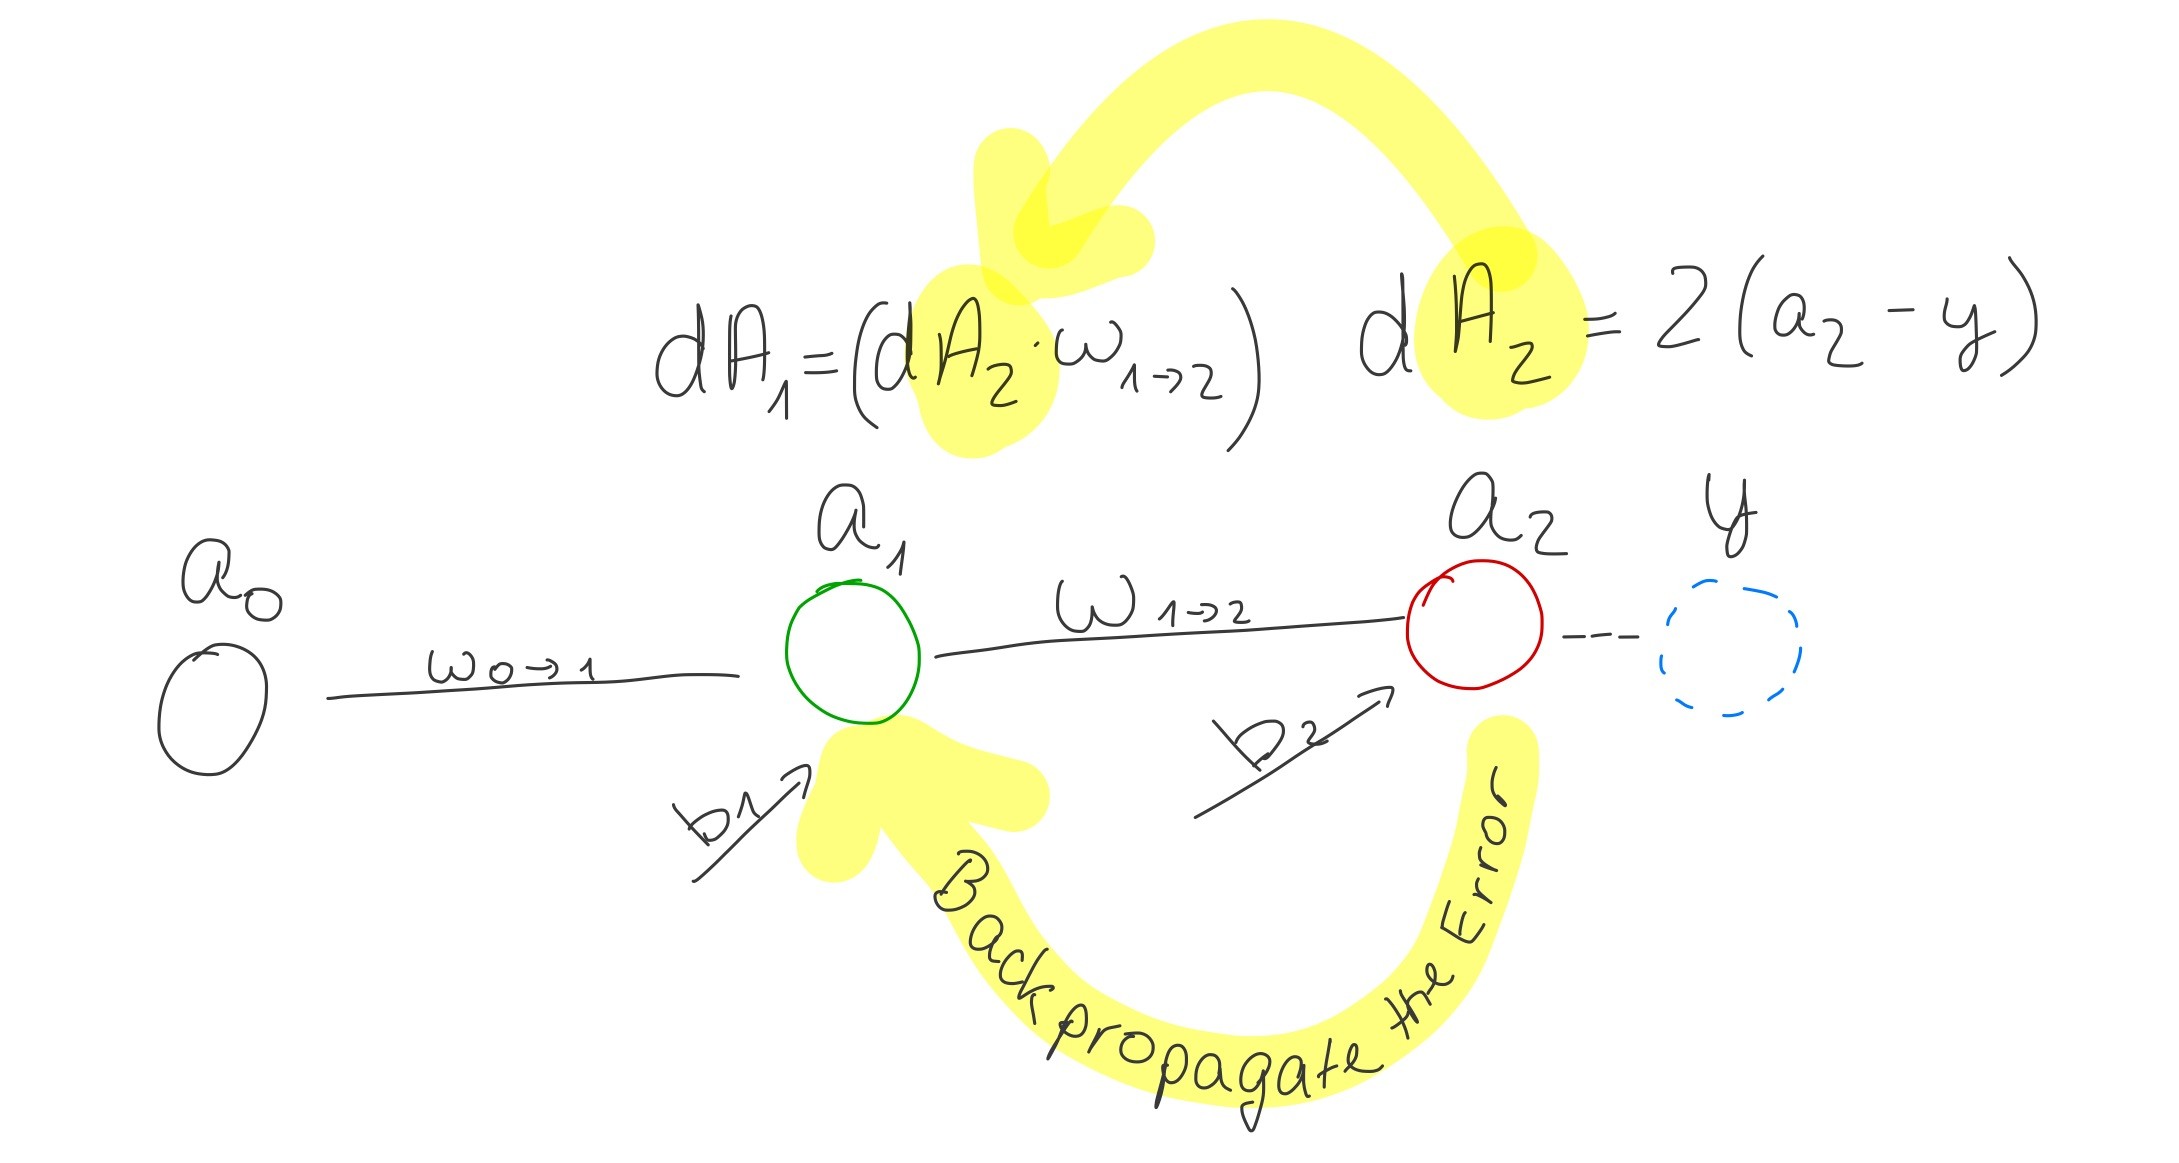 dA₁=(dA₂·w₁→₂)
dA₂=2(a₂-y)
a₀
a₁
a₂
y
w₀→₁
w₁→₂
b1
b₂
Back propagate the Error